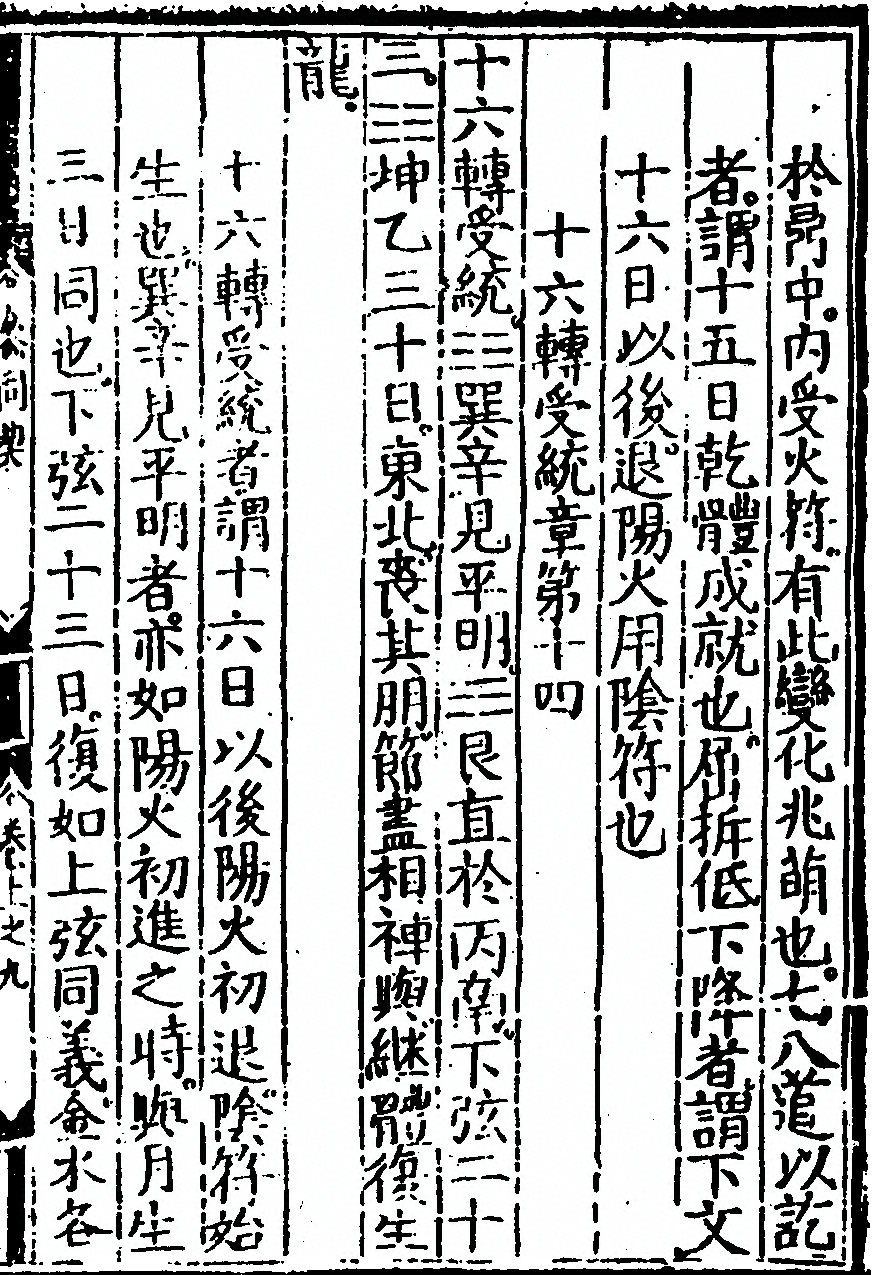 於鼎中。内受火符。有此變化兆萌也。七八道以訖
者。謂十五日乾體成就也。屈折低下降者。謂下文
十六日以後退。陽火用陰符也
十六轉受統章第十四
十六轉受統。☴巽辛見平明。☶艮直於丙南。下弦二十
三。☷坤乙三十日。東北喪其朋。節盡相禪與。繼體復生
龍。
十六轉受統者。謂十六日以後陽火初退。陰符始
生也。巽辛見平明者。亦如陽火初進之時。與月生
三日同也。下弦二十三日。復如上弦同義。金水各
參同契
卷上之九